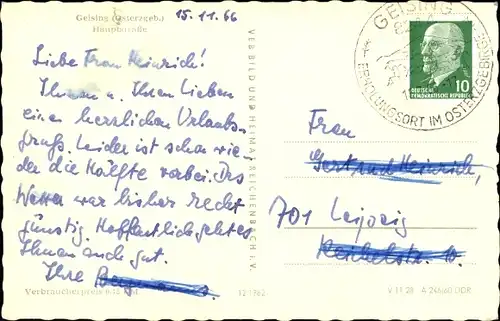 Geising (Osterzgeb.)
Hauptstraße
15.11.66
Liebe Frau Heinrich!
Ihnen u. Ihren Lieben
einen herrlichen Urlaubs-
gruß. Leider ist schon wie-
der die Hälfte vorbei. Das
Wetter war bisher recht
günstig. Hoffentlich geht es
Ihnen auch gut.
Ihre
Verbraucherpreis
12 1762
VEB BILD UND HEIMAT REICHENBACH I. V.
GEISING
ERHOLUNGSORT IM OSTERZGEBIRGE
DEUTSCHE
DEMOKRATISCHE REPUBLIK
10
Frau
Gertrud Heinrich,
701 Leipzig
Reichelstr. 10
V 11 28 A 246/60 DDR